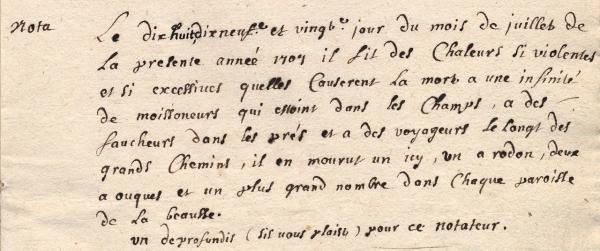 Nota
Le dixhuit dixneufe. et vingte. jour du mois de juillet de
la presente année 1707 il fit des Chaleurs si violentes
et si excessives quelles Causerent la mort a une infinité
de moissoneurs qui estoint dans les Champs, a des
faucheurs dans les prés et a des voyageurs le longt des
grands Chemins, il en mourut un icy, un a rodon, deux
a ouques et un plus grand nombre dans Chaque paroisse
de la beausse.
un deprofundis (sil vous plaist) pour ce notateur.